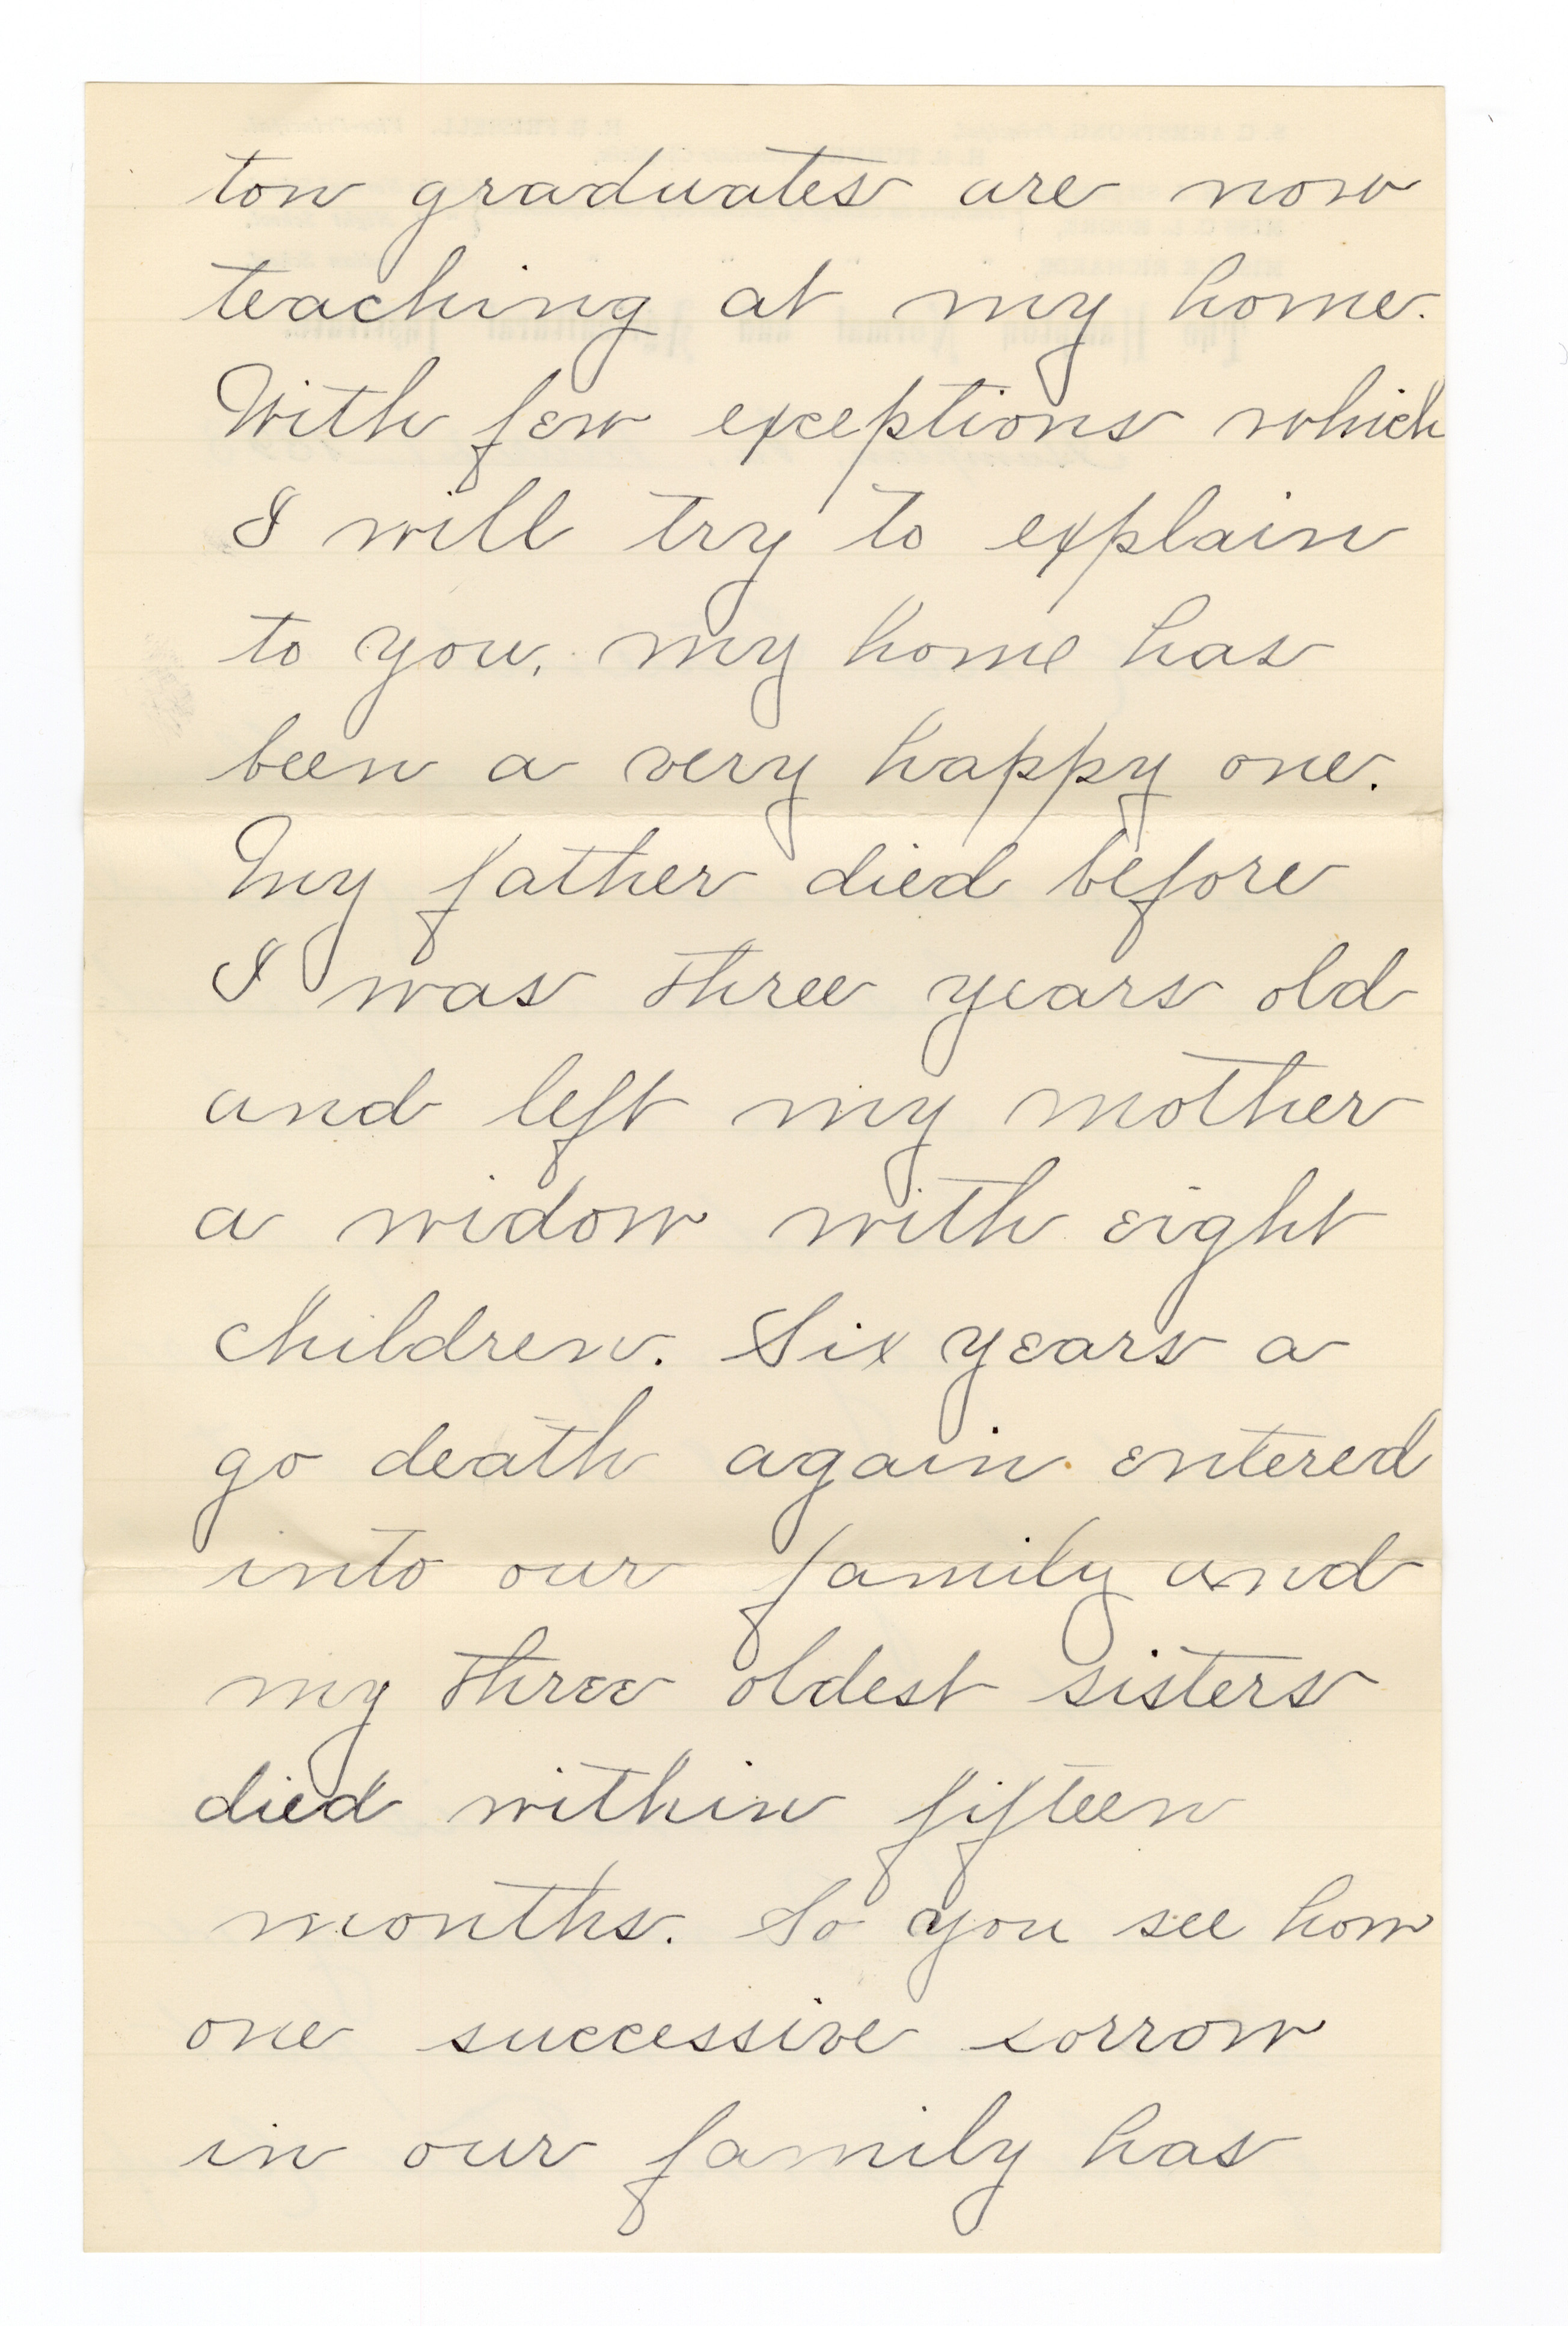 ton graduates are now
teaching at my home.
With few exceptions which
I will try to explain
to you, my home has
been a very happy one.
My father died before
I was three years old
and left my mother
a widow with eight
children. Six years a
go death again entered
into our family and
my three oldest sisters
died within fifteen
months. So you see how
one successive sorrow
in our family has